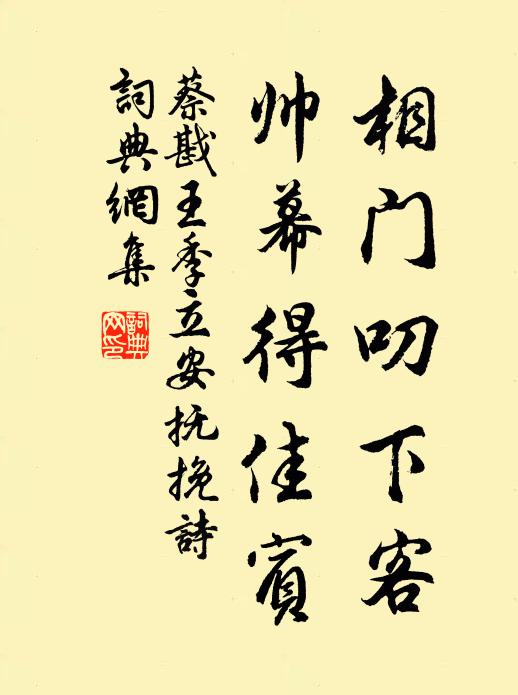 相门叨下客
帅幕得佳賓
蔡戡王季立安抚挽詩
詞典網集
詞典网印